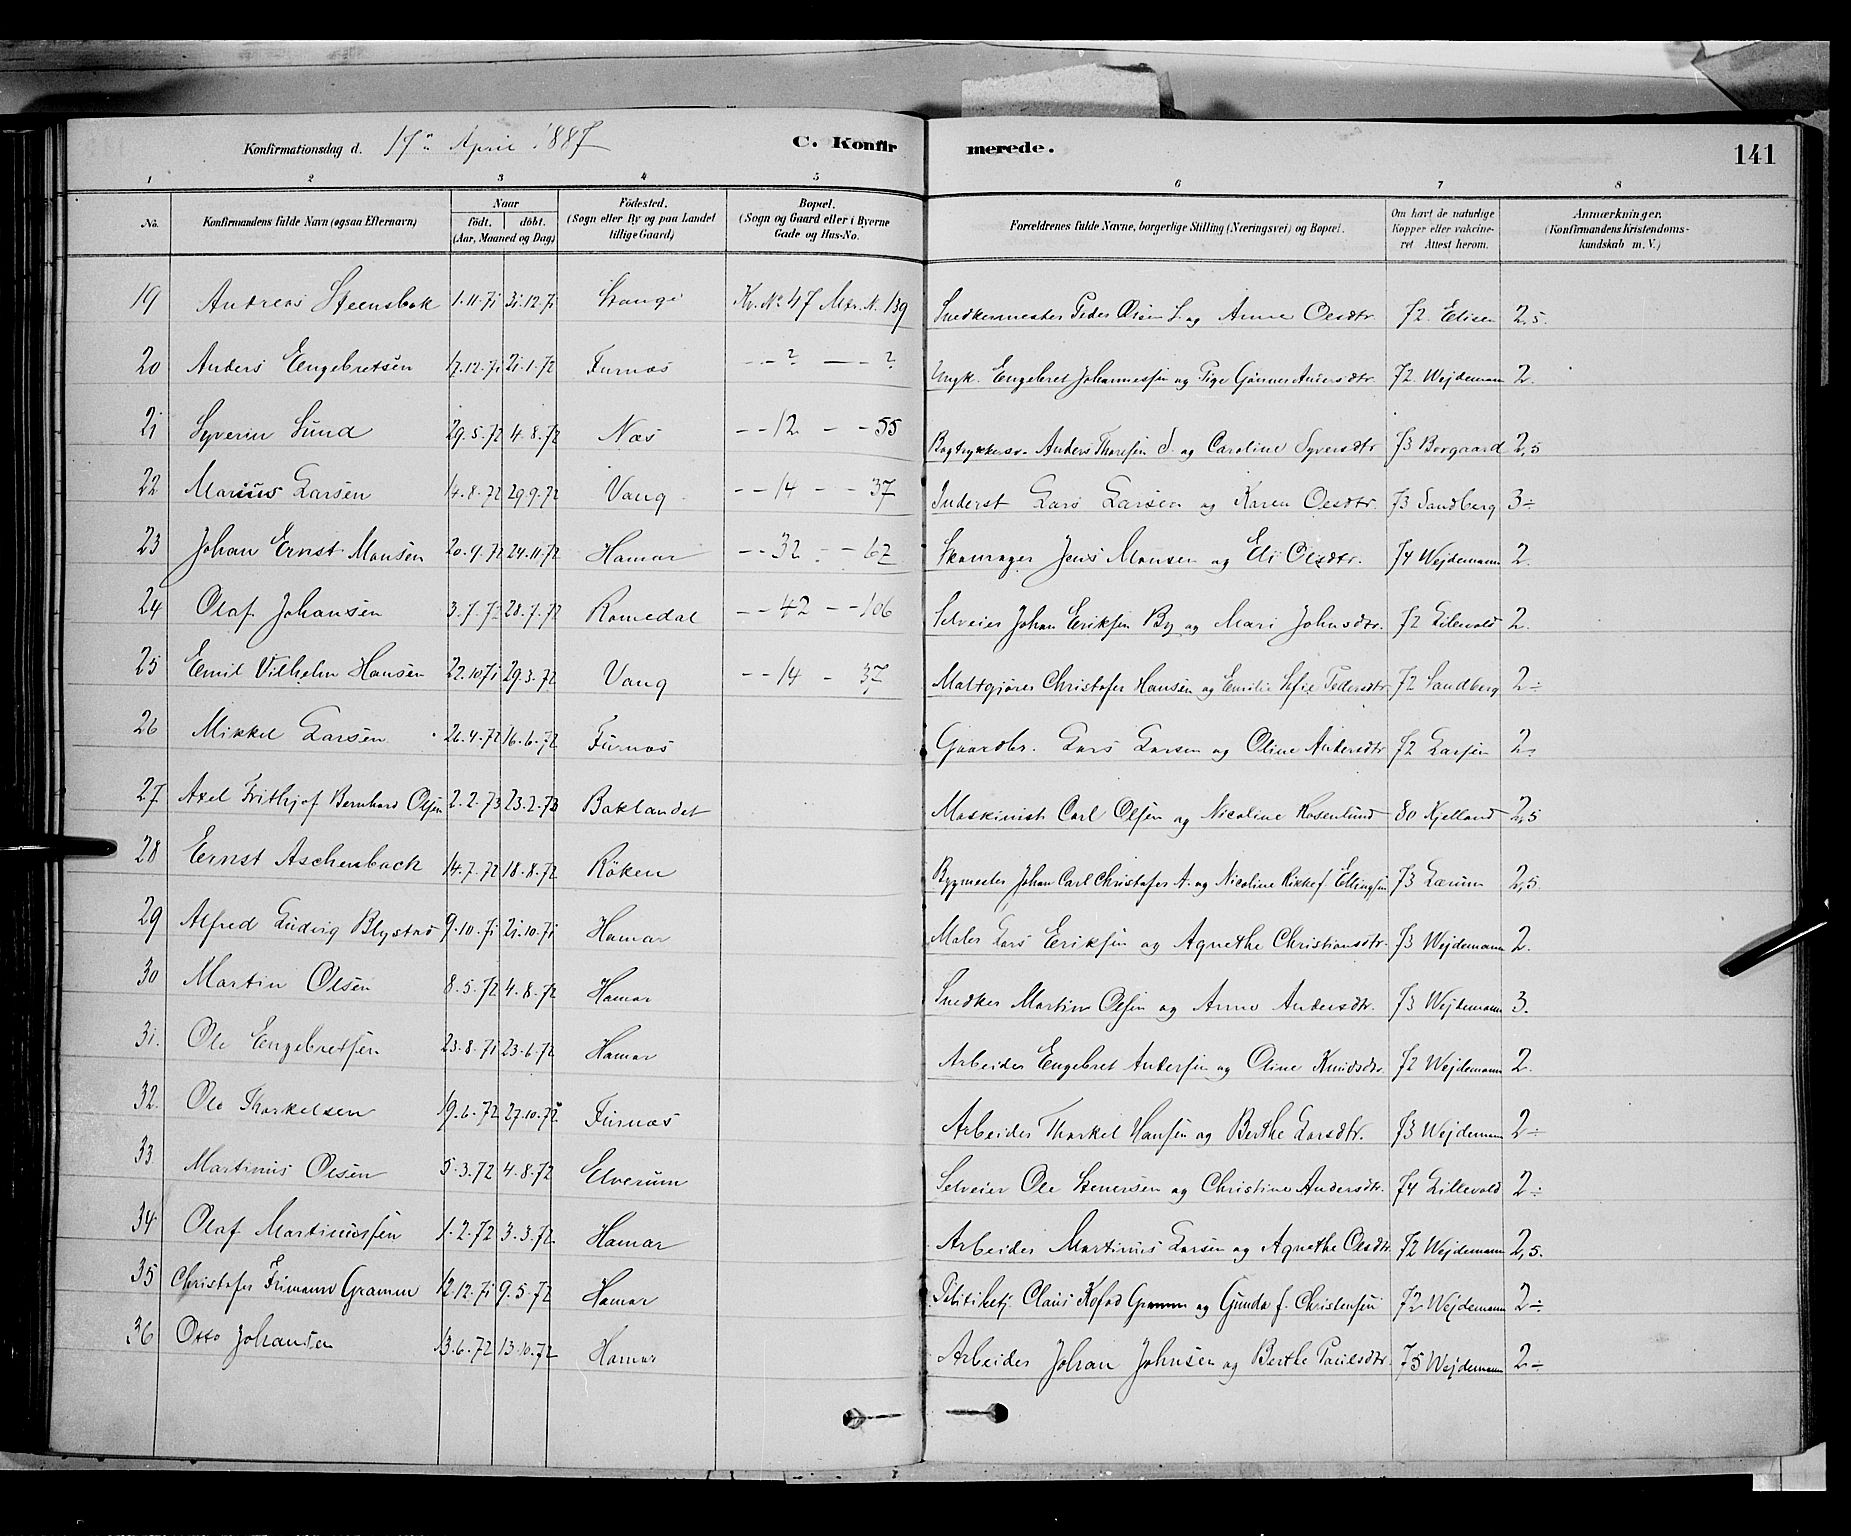 Konfirmationsdag d. 17de April 1887 C. Konfirmerede. 141
1 2 3 4 5 6 7 8
No. Konfirmandens fulde Navn (ogsaa Efternavn) Naar födt. döbt. (Aar, Maaned og Dag) Födested. (Sogn eller By og paa Landet tillige Gaard) Bopæl. (Sogn og Gaard eller i Byerne Gade og Hus-No. Forældrenes fulde Navne, borgerlige Stilling (Næringsvei) og Bopæl. Om havt de naturlige Kopper eller vakcineret Attest herom. Anmærkninger. (Konfirmandens Kristendomskundskab m. V.)
19 Andreas Steensbak 1.11.71 31.12.71 Stange Kv. No 47 Mtr. N. 139 Snedkermester Peder Olsen S. og Anne Olsdtr. 72. Edisen 2,5.
20 Anders Engebretsen 17.12.71 21.1.72 Furnæs - - ? - - ? Ungk. Engebret Johannesen og Pige Gunner Andersdtr. 72. Wejdemann 2.
21 Syverin Lund 29.5.72 4.8.72 Næs - - 12 - - 55 Bogtrykkersv. Anders Thoresen S. og Caroline Syversdtr 73 Borgaard 2,5
22 Marius Larsen 14.8.72 29.9.72 Vang - - 14 - - 37 Inderst Lars Larsen og Karen Olsdtr. 73 Sandberg 3÷
23 Johan Ernst Monsen 20.9.72 24.11.72 Hamar - - 32 - - 62 Skomager Jens Monsen og Eli Olsdtr. 74 Wejdemann 2.
24 Olaf Johansen 3.7.72 28.7.72 Romedal - - 42 - - 106 Selveier Johan Eriksen By og Mari Johnsdtr. 72 Lilevold 2.
25 Emil Vilhelm Hansen 22.10.71 29.3.72 Vang - - 14 - 37 Maltgjører Christofer Hansen og Emilie Sofie Pedersdtr 72 Sandberg 2÷
26 Mikkel Larsen 26.4.72 16.6.72 Furnæs Gaardbr. Lars Larsen og Oline Andersdtr 72 Larsen 2÷
27 Axel Frithjof Bernhard Olsen 2.2.73 23.2.73 Baklandet Maskinist Carl Olsen og Nicoline Rosenlund 80 Kjelland 2,5
28 Ernst Aschenbach 14.7.72 18.8.72 Röken Bygmester Johan Carl Christofer A. og Nicoline Rikke f. Ellingsen 73 Lærum 2,5.
29 Alfred Ludvig Blystad 9.10.71 21.10.71 Hamar Maler Lars Eriksen og Agnethe Christiansdtr. 73 Wejdemann 2.
30 Martin Olsen 8.5.72 4.8.72 Hamar Snedker Martin Olsen og Anne Andersdtr. 73 Wejdemann 3.
31. Ole Engebretsen 23.8.71 23.6.72 Hamar Arbeider Engebret Andersen og Oline Knudsdtr. 72 Wejdemann 2.
32. Ole Thorkelsen 19.6.72 27.10.72 Furnæs Arbeider Thorkel Hansen og Berthe Larsdtr. 73 Wejdemann 2÷
33 Martinus Olsen 5.3.72 4.8.72 Elverum Selveier Ole Stenersen og Christine Andersdtr. 74 Lillevold 2÷
34 Olaf Martinussen 1.2.72 3.3.72 Hamar Arbeider Martinus Larsen og Agnethe Olsdtr 72 Wejdemann 2,5.
35 Christofer Frimann Gramm 12.12.71 9.5.72 Hamar Politibetj. Claus Kofod Gramm og Gunda f. Christensen 72 Wejdemann 2÷
36 Otto Johansen 13.6.72 13.10.72 Hamar Arbeider Johan Johnsen og Berthe Paulsdtr. 75 Wejdemann 2÷